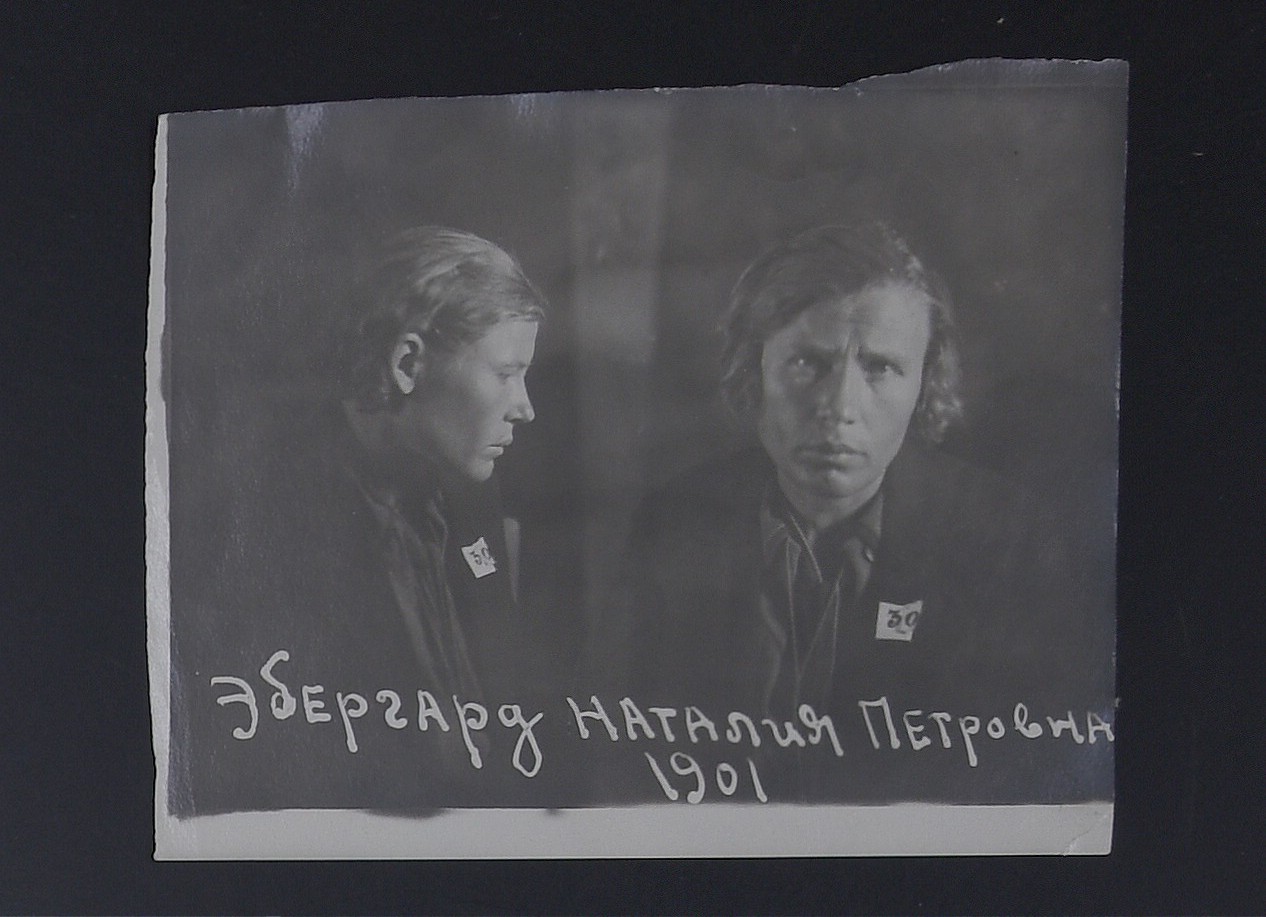 30
30
Эбергард Наталия Петровна
1901